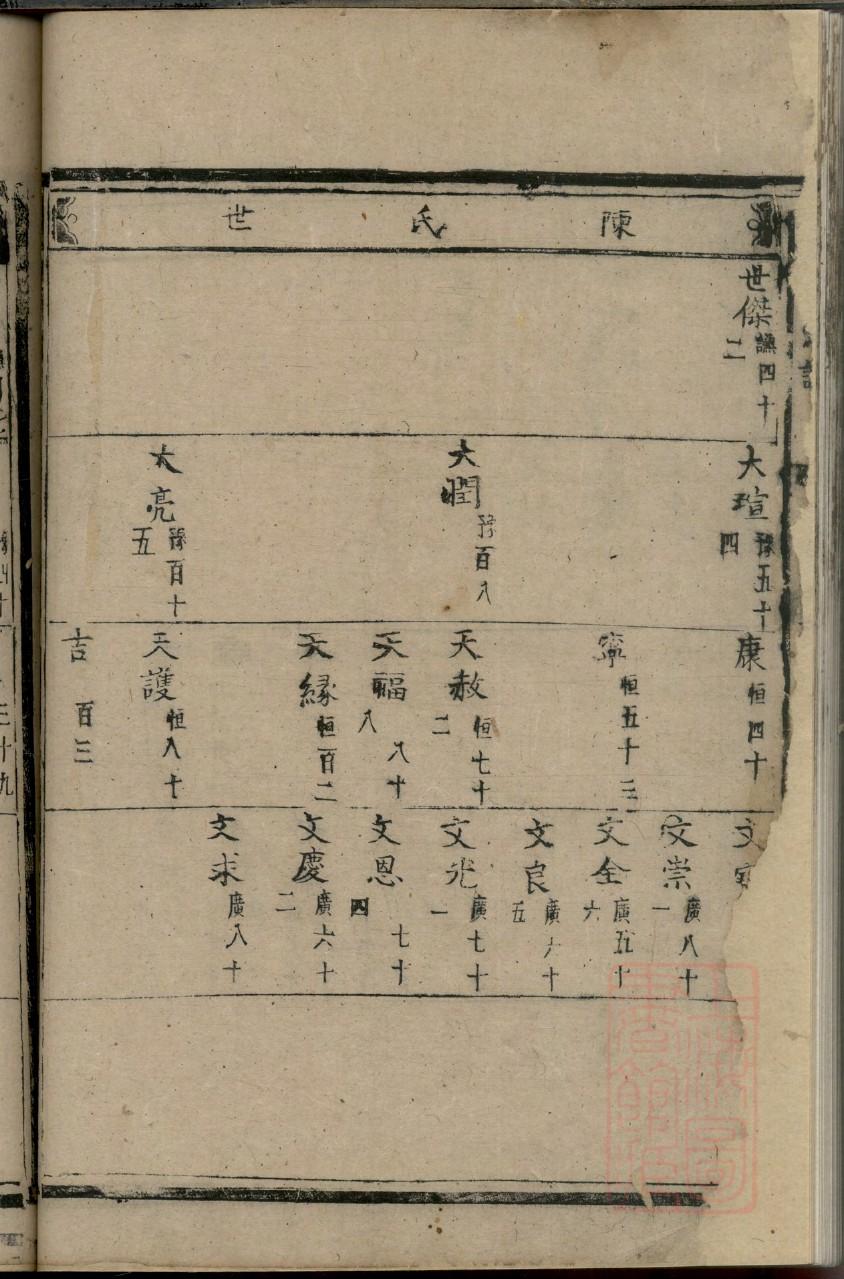 陳氏世
世傑 謙四十二
大瑄 豫五十四
大潤 豫百八
大亮 豫百十五
康 恒四十
寧 恒五十三
天赦 恒七十二
天福 八十八
天緣 恒百二
天護 恒八十
吉 百三
文
文崇 廣八十一
文全 廣五十六
文良 廣六十五
文光 廣七十一
文恩 七十四
文慶 廣六十二
文求 廣八十